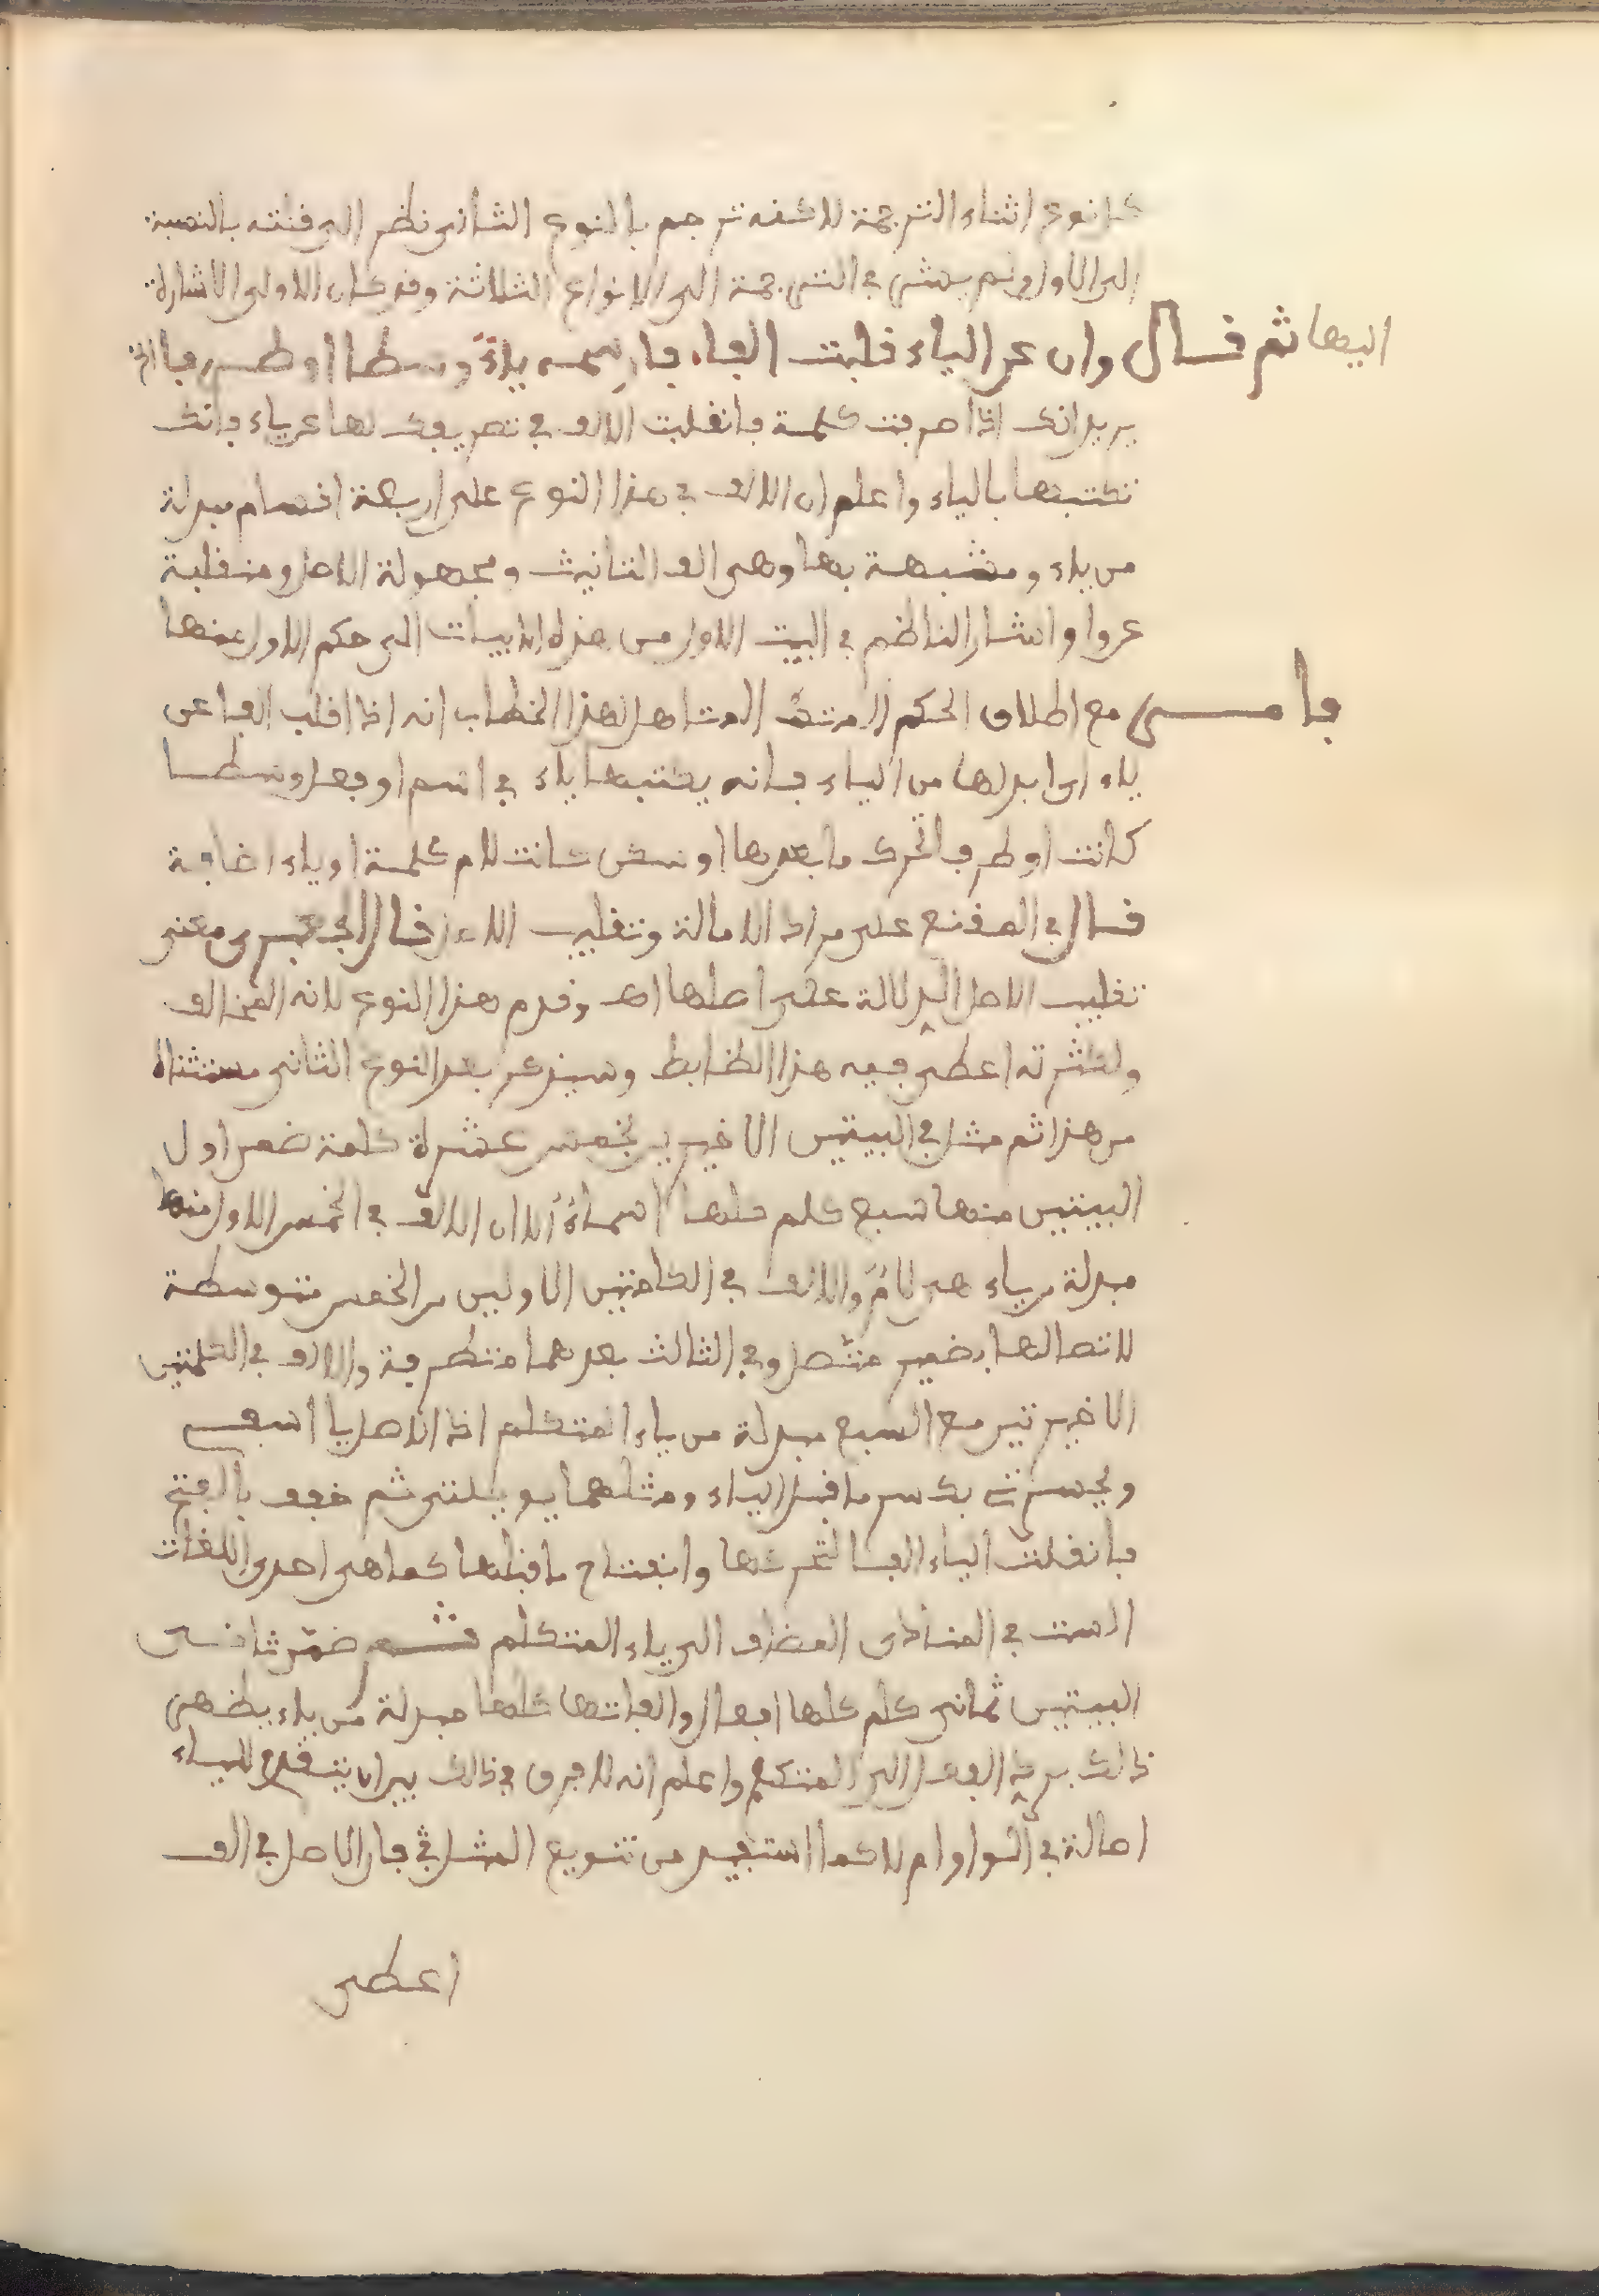 كل نوع اثناء الترجمة لاكنه ترجم بالنوع الثاني نظر الى قلته بالنسبة
الى الاول ولم يشر في الترجمة الى الانواع الثلاثة وقد كان الاولى الاشارة
اليها ثم قال وان عن الياء قلبت الفا فارسمه ياء وسطا او طرفا الخ
يريد انك اذا صرفت كلمة فانقلبت الالف في تصريفك لها عن ياء فانك
تكتبها بالياء واعلم ان الالف في هذا النوع على اربعة اقسام مبدلة
من ياء ومشبهة بها وهي الف التانيث ومجهولة الاصل ومنقلبة
عن واو واشار الناظم في البيت الاول من هذه الابيات الى حكم الاول منها
فامر مع اطلاق الحكم المتاهل لهذا الخطاب انه اذا اقلب الفا عن
ياء اي ابدلها من الياء فانه يكتبها ياء في اسم او فعل وسطا
كانت او طرفا تحرك ما بعدها او سكن كانت لام كلمة او ياء اضافة
قال في المقنع على مراد الامالة وتغليب الاصل قال الجعبري معنى
تغليب الاصل الدلالة على اصلها اهـ وقدم هذا النوع لانه المخالف
ولكثرته اعطى فيه هذا الضابط وسيذكر بعد النوع الثاني مستثناة
من هذا ثم مثل في البيتين الاخيرين بخمس عشرة كلمة ضمن اول
البيتين منها سبع كلم كلها اسماء الا ان الالف في الخمس الاول منها
مبدلة من ياء هي لام والالف في الكلمتين الاوليين من الخمس متوسطة
لاتصالها بضمير متصل وفي الثالث بعدهما متطرفة والالف في الكلمتين
الاخيرتين مع السبع مبدلة من ياء المتكلم اذ الاصل يا اسفي
ويحسرتي بكسر ما قبل الياء ومثلهما يويلتي ثم خفف بالفتح
فانقلبت الياء الفا لتحركها وانفتاح ما قبلها كما هي احدى اللغات
الست في المنادى المضاف الى ياء المتكلم ثم ضمن ثاني
البيتين ثماني كلم كلها افعال والفاتها كلها مبدلة من ياء يظهر
ذلك برد الفعل الى المتكلم واعلم انه لا فرق في ذلك بين ان يتقدم للياء
اصالة في الواو ام لا كما استفيد من تنويع المثل في فان الاصل في الف
اعطى